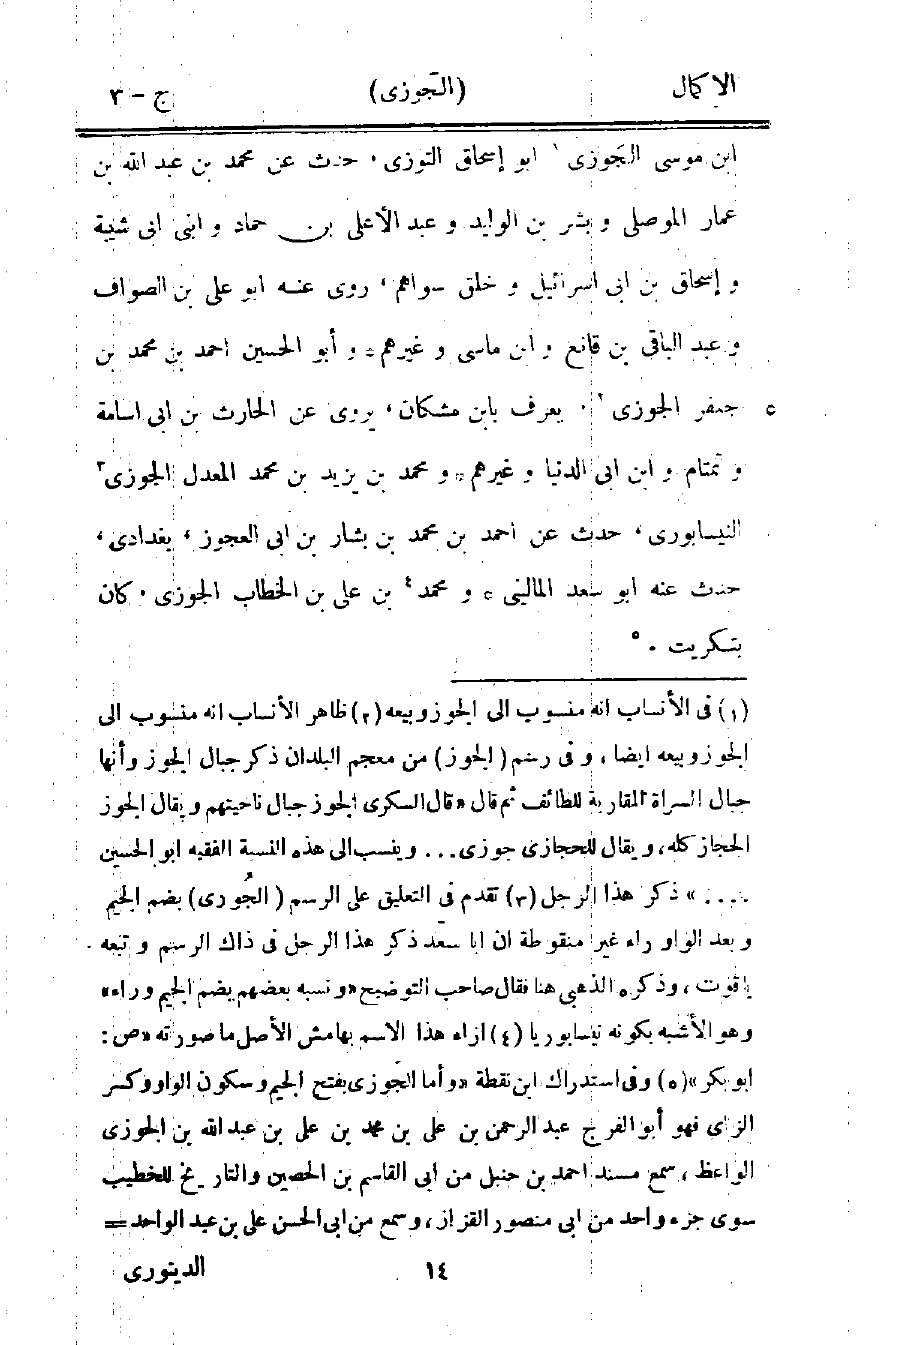 الإكمال (الجَوزى) ج - ٣
ابن موسى الجَوزى ١ ابو إسحاق التوزى، حدث عن محمد بن عبد الله بن
عمار الموصلى و بشر بن الوليد و عبد الأعلى بن حماد و ابنى ابى شيبة
و إسحاق بن ابى اسرائيل و خلق سواهم، روى عنه ابو على بن الصواف
و عبد الباقى بن قانع و ابن ماسى و غيرهم ٥ و أبو الحسين احمد بن محمد بن
جعفر الجوزى ٢ . يعرف بابن مشكان، يروى عن الحارث بن ابى اسامة ٥
و تمتام و ابن ابى الدنيا و غيرهم ٥ و محمد بن يزيد بن محمد المعدل الجوزى ٣
النيسابورى، حدث عن احمد بن محمد بن بشار بن ابى العجوز، بغدادى،
حدث عنه ابو سعد المالينى ٥ و محمد ٤ بن على بن الخطاب الجوزى . كان
بتكريت . ٥
(١) فى الأنساب انه منسوب الى الجوز وبيعه (٢) ظاهر الأنساب انه منسوب الى
الجوز وبيعه ايضا، و فى رسم (الجوز) من معجم البلدان ذكر جبال الجوز وأنها
جبال السراة المقاربة للطائف ثم قال «قال السكرى الجوز جبال ناحيتهم ويقال الجوز
الحجاز كله، ويقال للحجازى جوزى ... وينسب الى هذه النسبة الفقيه ابو الحسين
....» ذكر هذا الرجل (٣) تقدم فى التعليق على الرسم (الجُورى) بضم الجيم
و بعد الواو راء غير منقوطة ان ابا سعد ذكر هذا الرجل فى ذاك الرسم و تبعه
ياقوت، وذكره الذهبى هنا فقال صاحب التوضيح «و نسبه بعضهم بضم الجيم وراء»
وهو الأشبه بكونه نيسابوريا (٤) ازاء هذا الاسم بهامش الأصل ما صورته «ص:
ابو بكر» (٥) وفى استدراك ابن نقطة «وأما الجَوزى بفتح الجيم وسكون الواو وكسر
الزاى فهو أبو الفرج عبد الرحمن بن على بن محمد بن على بن عبد الله بن الجوزى
الواعظ، سمع مسند احمد بن حنبل من ابى القاسم بن الحصين والتاريخ للخطيب
سوى جزء واحد من ابى منصور القزاز، وسمع من ابى الحسن على بن عبد الواحد =
١٤ الدينورى